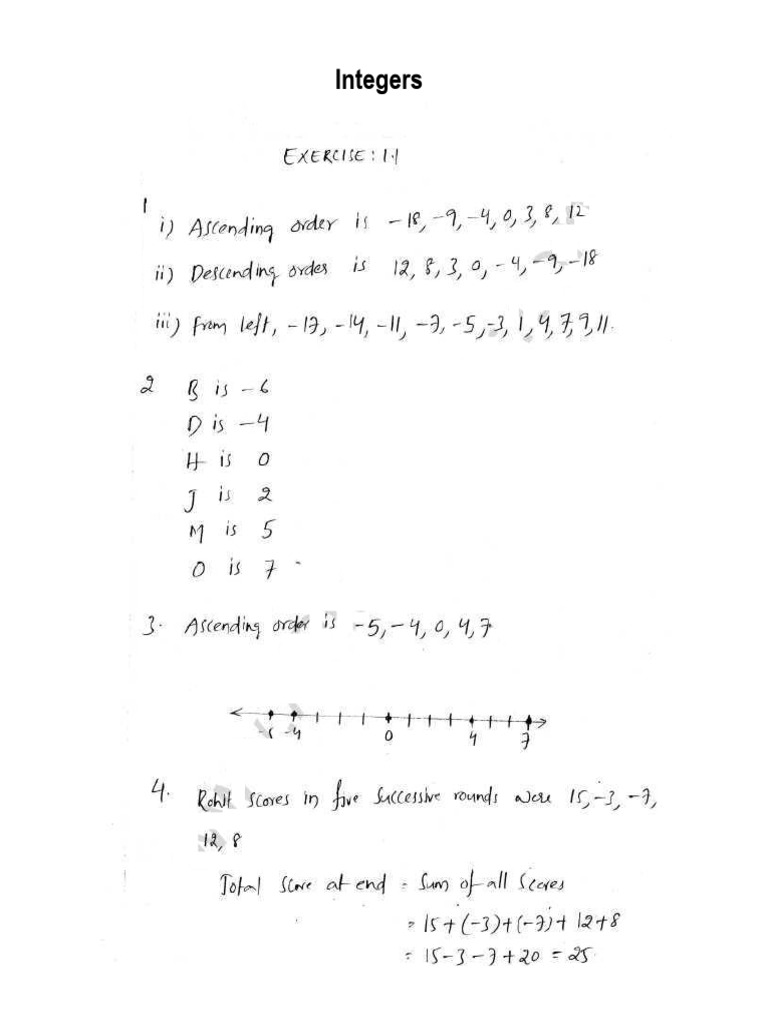 Integers
EXERCISE: 1.1
1
i) Ascending order is -18, -9, -4, 0, 3, 8, 12
ii) Descending order is 12, 8, 3, 0, -4, -9, -18
iii) From left, -17, -14, -11, -7, -5, -3, 1, 4, 7, 9, 11.
2 B is -6
D is -4
H is 0
J is 2
M is 5
O is 7
3. Ascending order is -5, -4, 0, 4, 7
-5 -4 0 4 7
4. Rohit scores in five successive rounds were 15, -3, -7,
12, 8
Total score at end = Sum of all scores
= 15+(-3)+(-7)+12+8
= 15-3-7+20 = 25